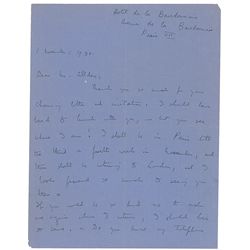 Hotel de la Bourdonnais
Avenue de la Bourdonnais
Paris VII
1930.
Dear Mr.
Thank you so much for your
charming letter and invitation. I should have
loved to lunch with you, but you see
where I am! I shall be in Paris till
the third or fourth week in November, and
then shall be returning to London, and I
look forward so much to seeing you
then.
If you would be so kind as to ask
me again when I return, I should love
to come. Do you have my telephone